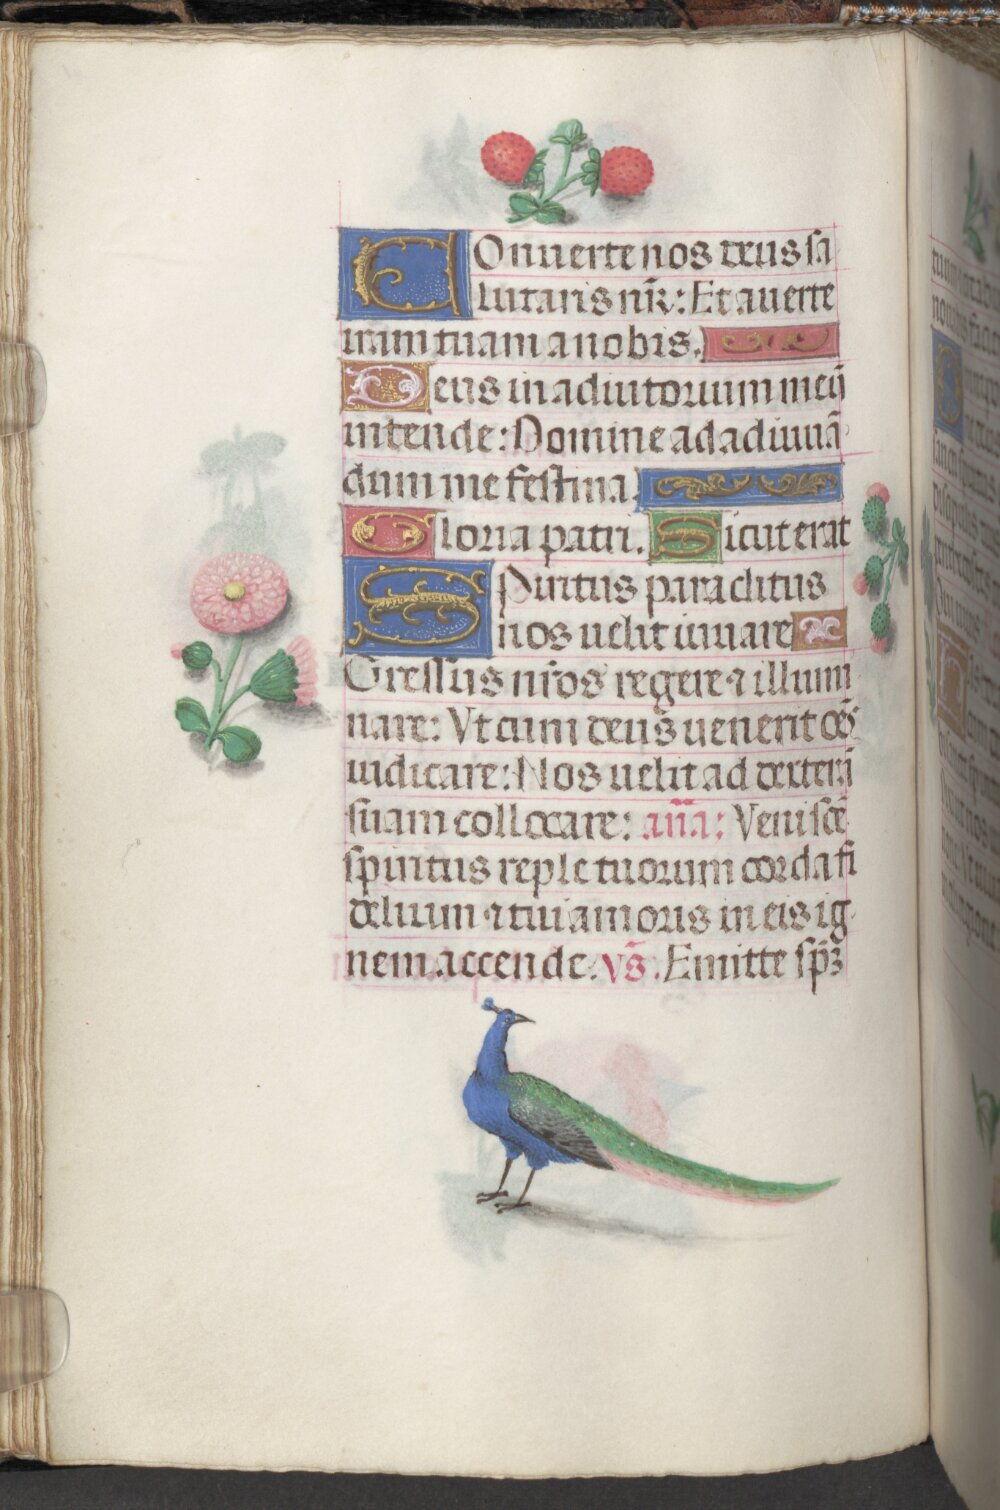 Conuerte nos deus sa
lutaris nr̄: Et auerte
iram tuam a nobis.
Deus in adiutorium meū
intende: Domine ad adiuuā
dum me festina.
Gloria patri. Sicut erat
Spiritus paraclitus
nos uelit iuuare
Gressus nr̄os regere ⁊ illumi
nare: Vt cum deus uenerit oēs
iudicare: Nos uelit ad dexterā
suam collocare: an̄a: Veni scē
spiritus reple tuorum corda fi
delium ⁊ tui amoris in eis ig
nem accende. vs̄. Emitte sp̄ꝫ